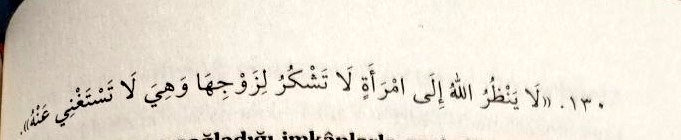 ١٣٠. «لَا يَنْظُرُ اللهُ إِلَى امْرَأَةٍ لَا تَشْكُرُ لِزَوْجِهَا وَهِيَ لَا تَسْتَغْنِي عَنْهُ».
sağladığı imkânlarla